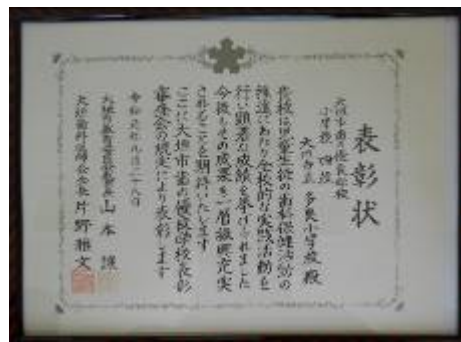 表彰状
大垣市歯の優良学校
小学校 四位
大垣市立 多良小学校 殿
貴校は児童生徒の歯科保健活動の
推進にあたり全校的な実践活動を
行い顕著な成績を挙げられました
今後もその成果を一層拡充充実
されることを期待いたします
ここに大垣市歯の優良学校表彰
審査会の規定により表彰します
大垣市教育委員会教育長 山本 讓
大垣歯科医師会会長 片野雅文